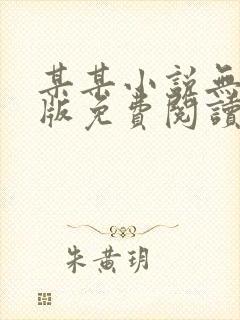 某某小説無
版免費閱讀
朱黃玥